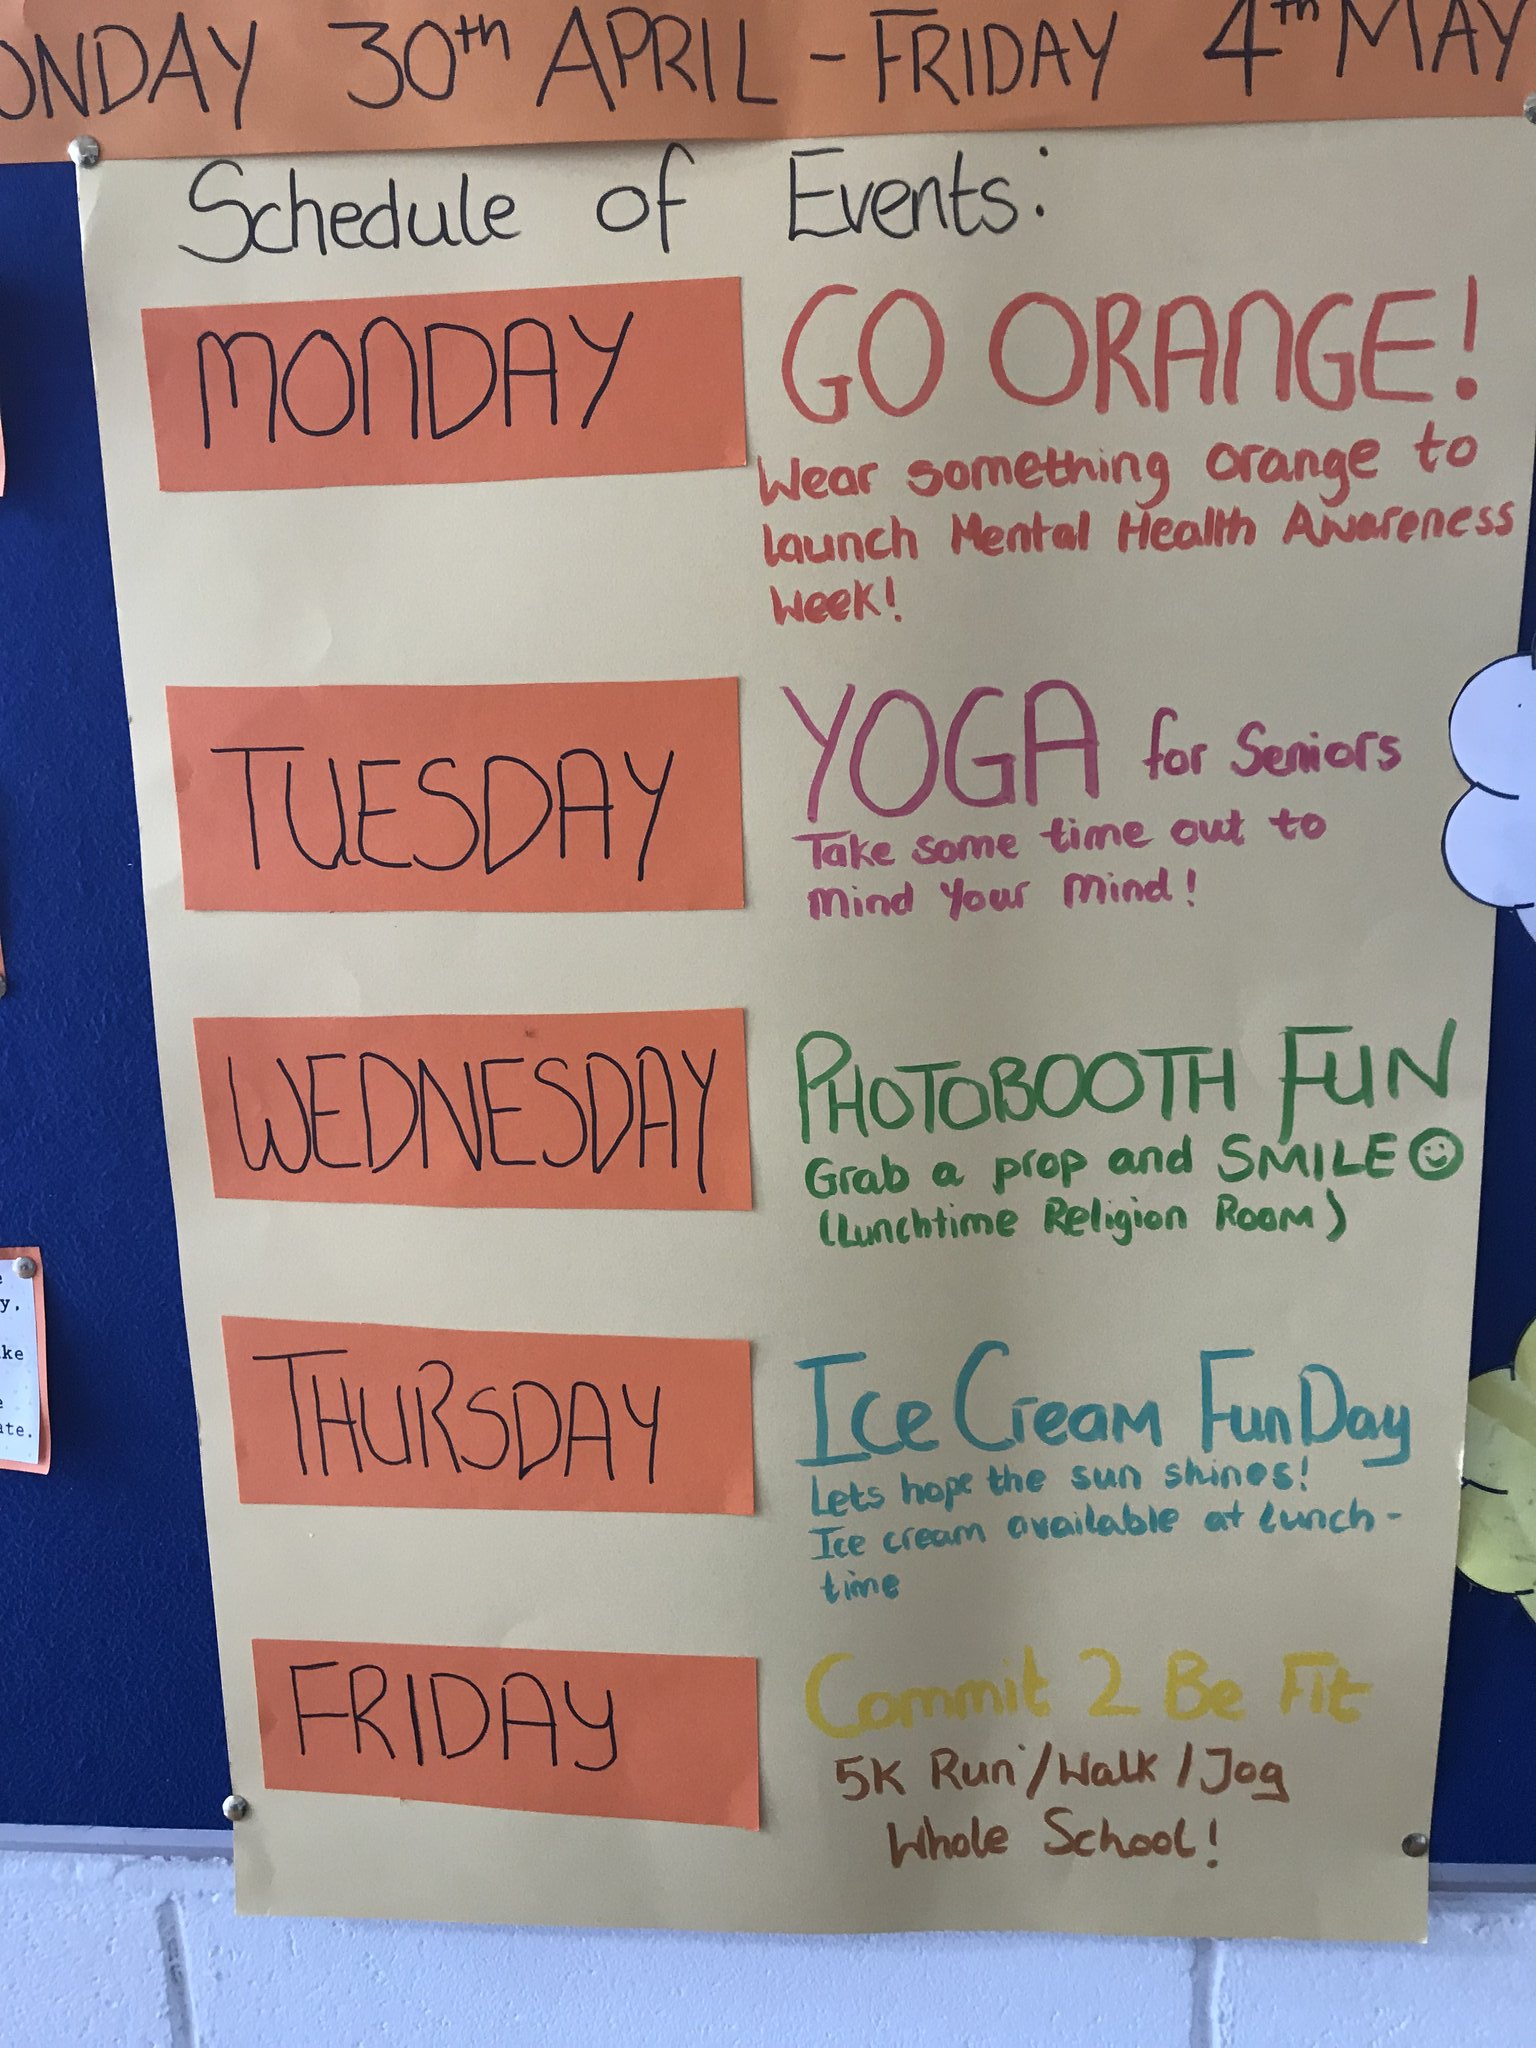 ONDAY 30th APRIL - FRIDAY 4th MAY
Schedule of Events:
MONDAY
GO ORANGE!
Wear something orange to
launch Mental Health Awareness
Week!
TUESDAY
YOGA for Seniors
Take some time out to
Mind Your Mind!
WEDNESDAY
PHOTOBOOTH FUN
Grab a prop and SMILE
(Lunchtime Religion Room)
THURSDAY
Ice Cream FunDay
Lets hope the sun shines!
Ice cream available at lunch-
time
FRIDAY
Commit 2 Be Fit
5K Run/Walk/Jog
Whole School!